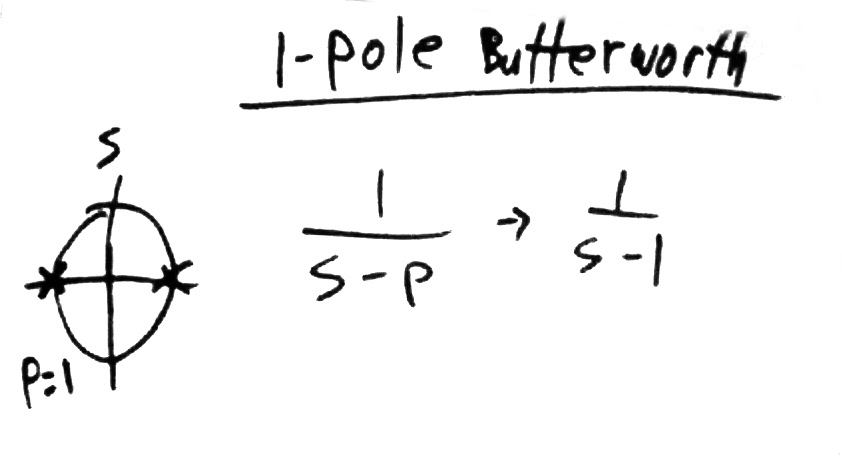 1-pole Butterworth
S
1/(S-p) → 1/(S-1)
p=1